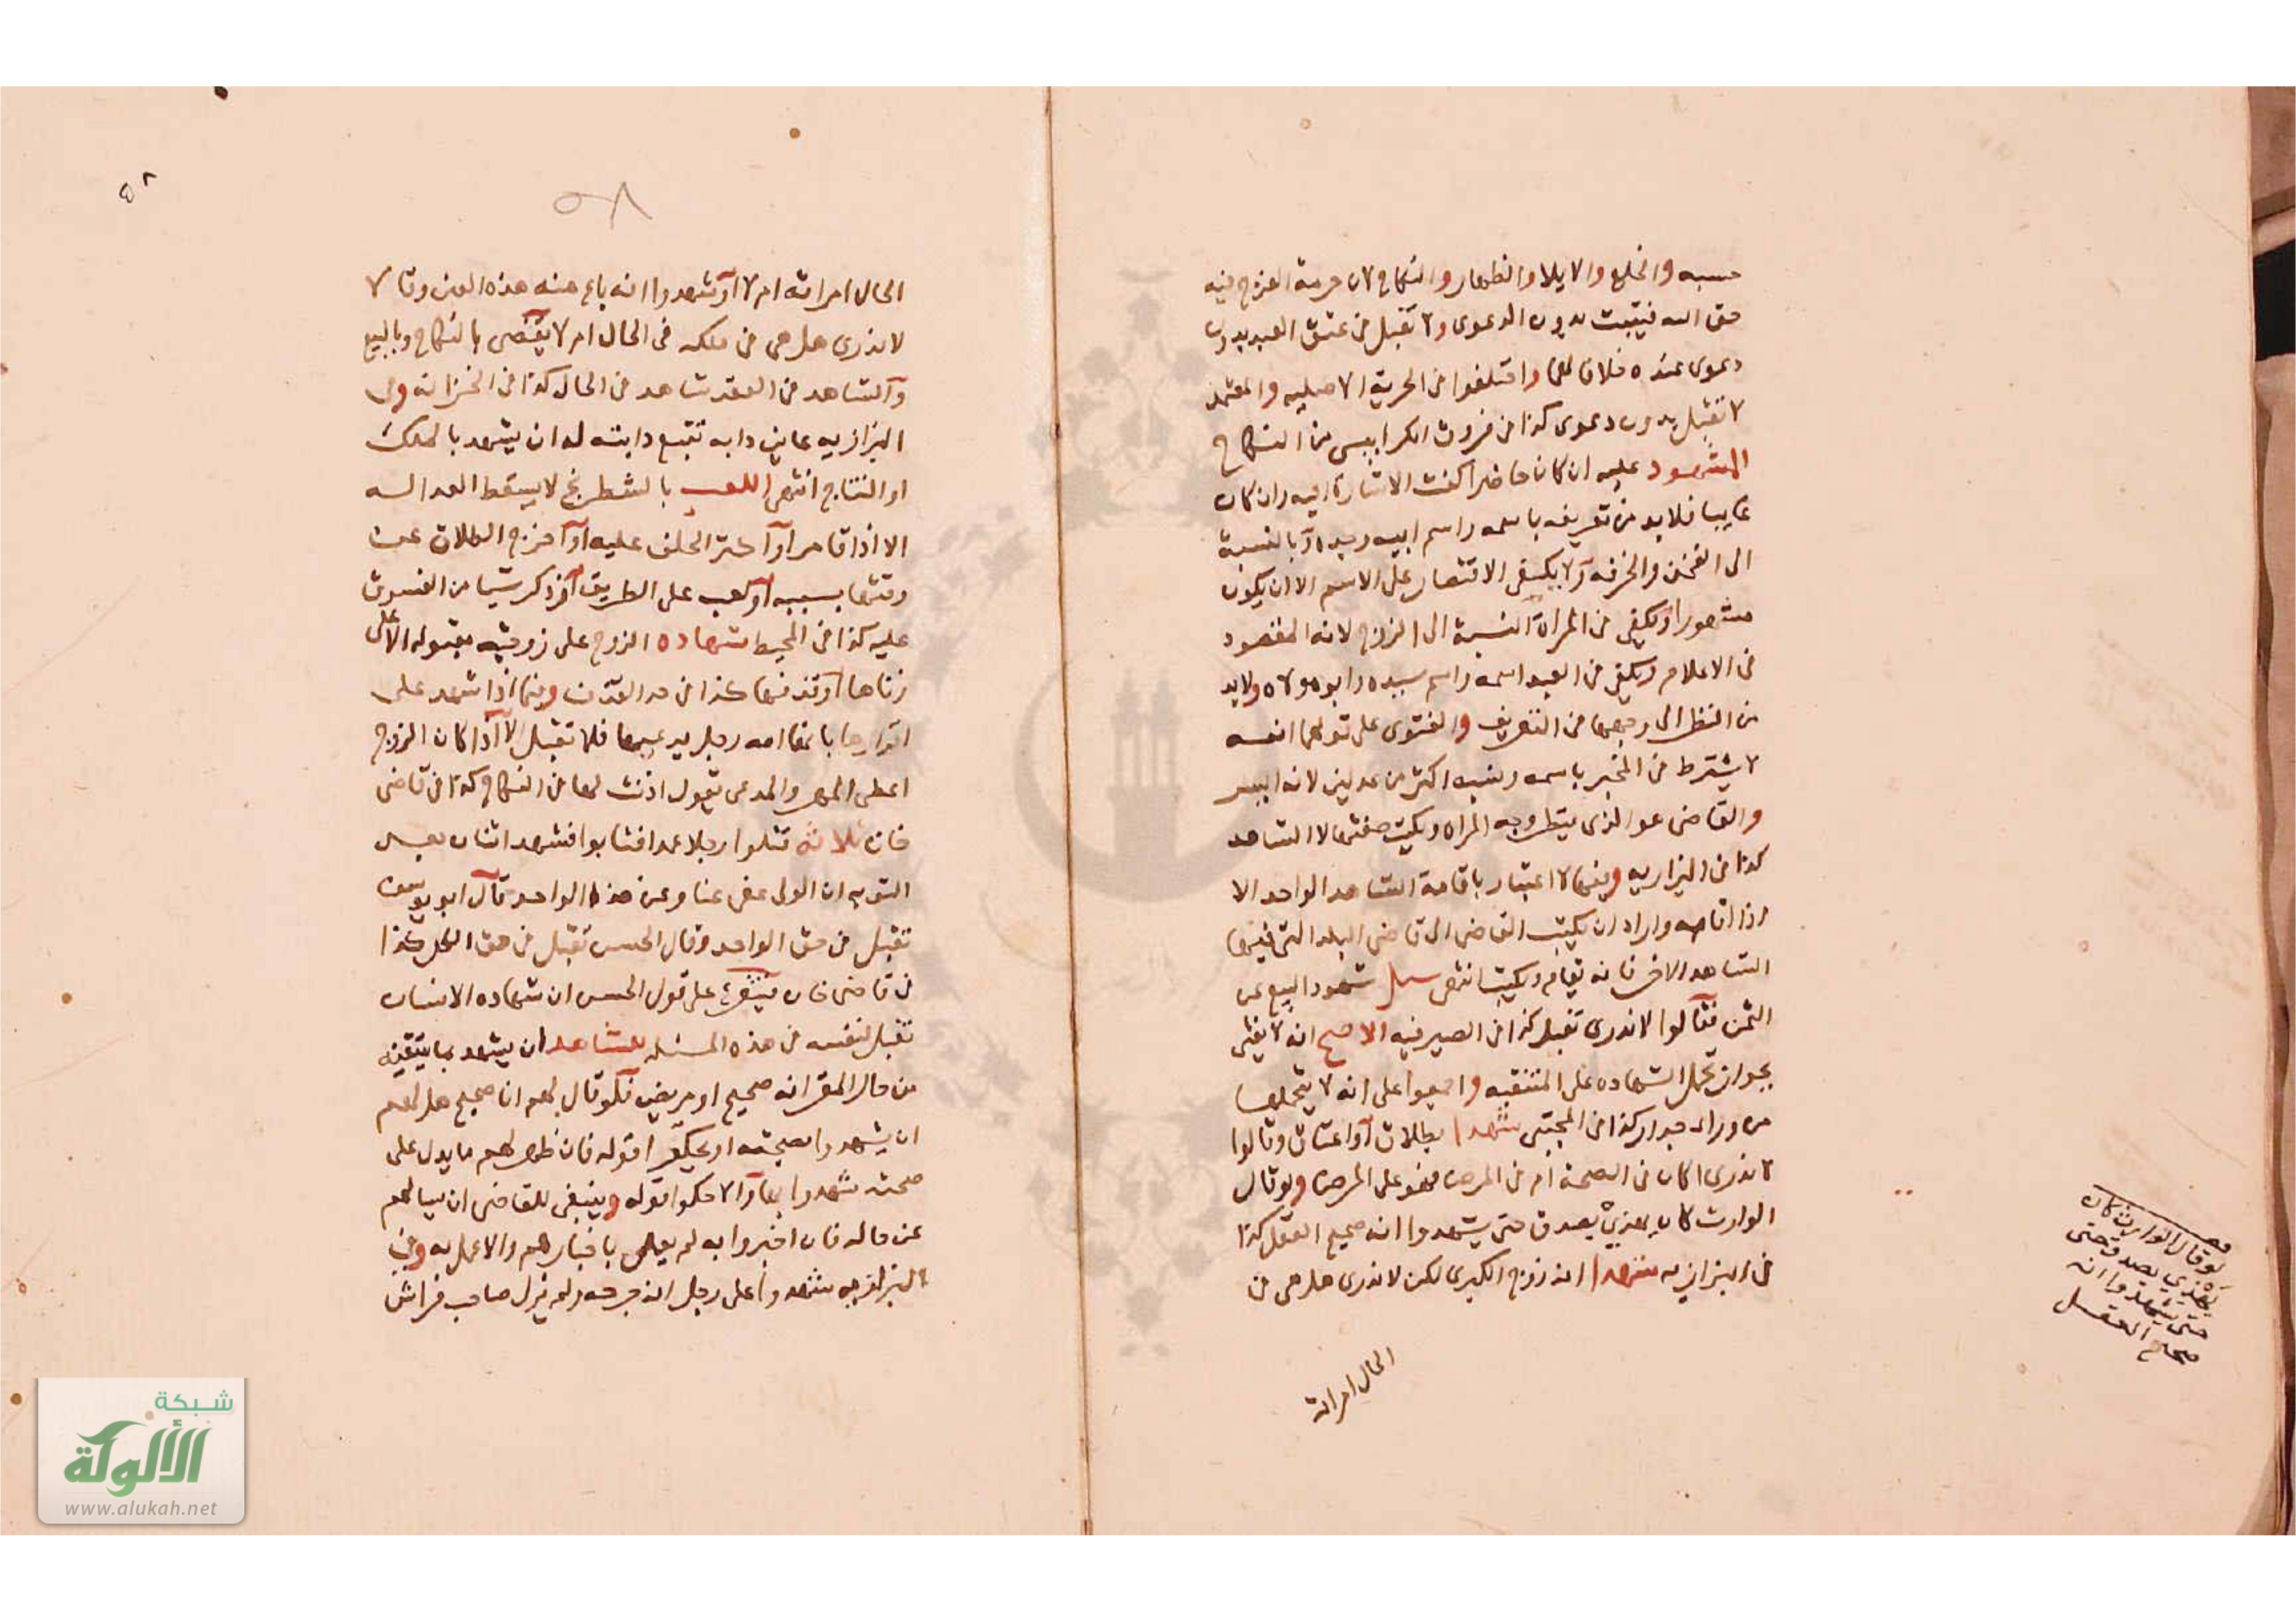 حسبه والخلع والايلا والظهار والنكاح لان حرمة الفرج فيه
حق الله فيثبت بدون الدعوى ولا تقبل في عتق العبد بدون
دعوى عنده خلافا لهما واختلفوا في الحرية الاصليه والمعتمد
لا تقبل بدون دعوى كذا في فروق الكرابيسى من النكاح
المشهود عليه ان كان حاضرا كفت الاشارة اليه وان كان
غايبا فلابد من تعريفه باسمه واسم ابيه وجده او بالنسبة
الى الفخذ والحرفه ولا يكفى الاقتصار على الاسم الا ان يكون
مشهورا ويكفى في المراة النسبة الى الزوج لانه المقصود
في الاعلام ويكفى في العبد اسمه واسم سيده وابو مولاه ولابد
من النظر الى وجهها في التعريف والفتوى على قولهما انه
لا يشترط في المخبر باسمه ونسبه اكثر من عدلين لانه ايسر
والقاضى هو الذى ينظر وجه المراه ويكتب صفتها لا الشاهد
كذا في البزازيه وفيها لا اعتبار باقامة الشاهد الواحد الا
اذا اقامه واراد ان يكتب القاضى الى قاضى البلد التى فيها
الشاهد الاخر فانه يقام ويكتب انتهى سئل شهود البيع عن
الثمن فقالوا لا ندرى تقبل كذا في الصيرفيه الاصح انه لا يفتى
بجواز تحمل الشهاده على المتنقبه واجمعوا على انه لا يتحملها
من وراء جدار كذا في المجتبى شهدا بطلاق او اعتاق وقالوا
لا ندرى اكان في الصحة ام في المرض فهو على المرض ولو قال
الوارث كان يهذى يصدق حتى يشهدوا انه صحيح العقل كذا
في البزازيه شهدا انه زوج الكبرى لكن لا ندرى هل هى في
الحال امراته
لو قال الوارث كان
يهذي يصدق حتى
حتى يشهدوا انه
صحيح العقل
٥٨
٥٨
الحال امراته ام لا او شهدوا انه باع منه هذه العين وقالا
لا ندرى هل هى في ملكه في الحال ام لا يقضى بالنكاح وبالبيع
والشاهد في العقد شاهد في الحال كذا في الخزانه وفى
البزازيه عاين دابه تتبع دابته له ان يشهد بالملك
او النتاج انتهى اللعب بالشطرنج لا يسقط العدالة
الا اذا قامر او اكثر الحلف عليه او اخرج الصلاة عن
وقتها بسببه او لعب على الطريق او ذكر شيا من الفسوق
عليه كذا في المحيط شهاده الزوج على زوجته مقبوله الا على
زناها او قذفها كذا في حد القذف وفيما اذا شهد على
اقرارها بانها امه رجل يدعيها فلا تقبل الا اذا كان الزوج
اعطى المهر والمدعى يقول اذنت لها في النكاح كذا في قاضى
خان ثلاثه قتلوا رجلا عمدا فتابوا فشهد اثنان بعد
التوبه ان الولى عفى عنا وعن هذا الواحد قال ابو يوسف
تقبل في حق الواحد وقال الحسن تقبل في حق الكل كذا
في قاضى خان على قول الحسن ان شهاده الانسان
تقبل لنفسه في هذه المسئله للشاهد ان يشهد بما يتيقنه
من حال المقر انه صحيح او مريض فلو قال لهم انا صحيح هل لهم
ان يشهدوا بصحته او يحكى اقوله فان ظهر لهم ما يدل على
صحته شهدوا بها والا حكوا قوله وينبغى للقاضى ان يسالهم
عن حاله فان اخبروا به لم يعلم باخبارهم والا عمل به وفى
البزازيه شهدوا على رجل انه جرحه ولم يزل صاحب فراش
شبكة
الألوكة
www.alukah.net